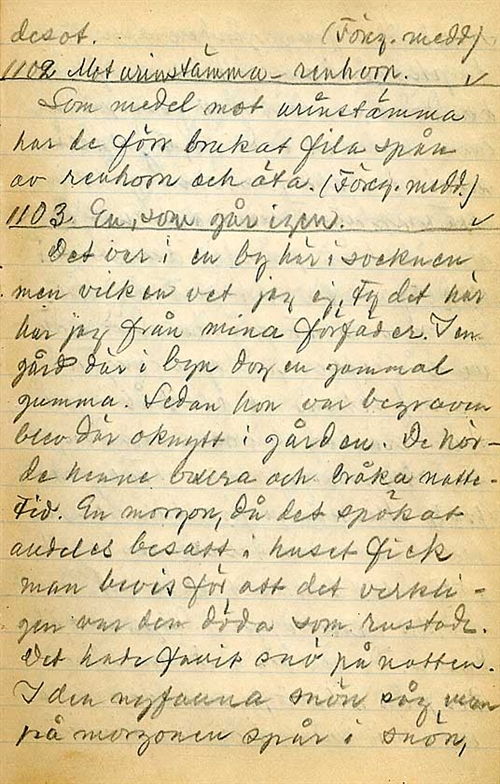 desot. (Föreg. medd)
1102 Mot urinstämma - renhorn. ✓
Som medel mot urinstämma
har de förr brukat fila spån
av renhorn och äta. (Föreg. medd.)
1103 En, som går igen. ✓
Det var i en by här i socknen
men vilken vet jag ej, Ty det här
har jag från mina förfäder. I en
gård där i byn dog en gammal
gumma. Sedan hon var begraven
blev där oknytt i gården. De hör-
de henne bulera och bråka natte-
tid. En morgon, då det spökat
alldeles besatt i huset fick
man bevis för att det verkli-
gen var den döda som rustade.
Det hade fallit snö på natten.
I den nyfallna snön såg man
på morgonen spår i snön,